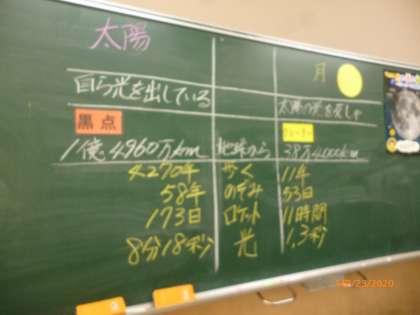 太陽
月
自ら光を出している
太陽の光を反しゃ
黒点
クレーター
1億4960万km 地球から 38万4000km
4270年 歩く 11年
58年 のぞみ 53日
173日 ロケット 11時間
8分18秒 光 1.3秒
/23/2020